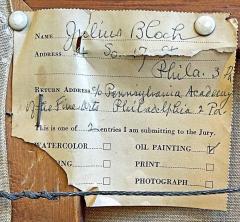 NAME Julius Bloch
ADDRESS So. 17 St
Phila. 3 Pa
RETURN ADDRESS c/o Pennsylvania Academy
of the Fine Arts Philadelphia 2 Pa.
This is one of 2 entries I am submitting to the Jury.
WATERCOLOR OIL PAINTING ✓
ING PRINT
PHOTOGRAPH